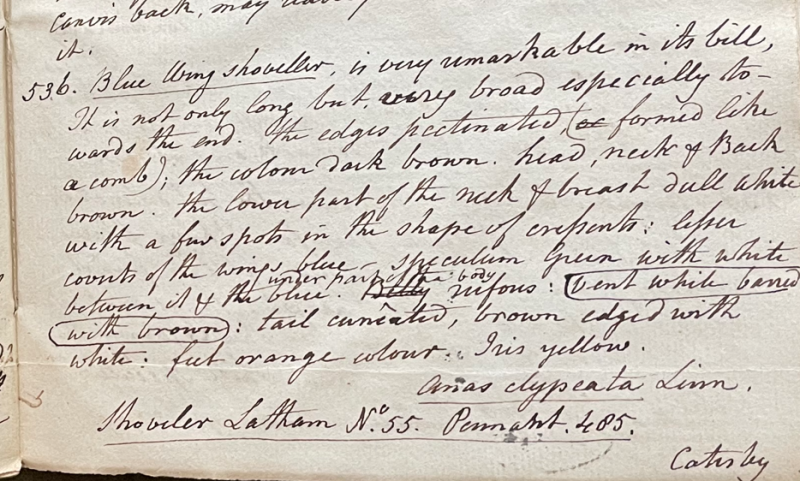 canvis back, may
it.
536. Blue Wing shoveller, is very remarkable in its bill,
It is not only long but, very broad especially to-
wards the end. the edges pectinated, (or formed like
a comb); the colour dark brown. head, neck & Back
brown. the lower part of the neck & breast dull white
with a few spots in the shape of cressents: lesser
coverts of the wings blue - speculum Green with white
between it & the blue. Belly under part of the body rufous: vent white barred
with brown: tail cuneated, brown edged with
white: feet orange colour. Iris yellow.
Anas clypeata Linn.
Shoveler Latham No. 55. Pennant. 485.
Catesby